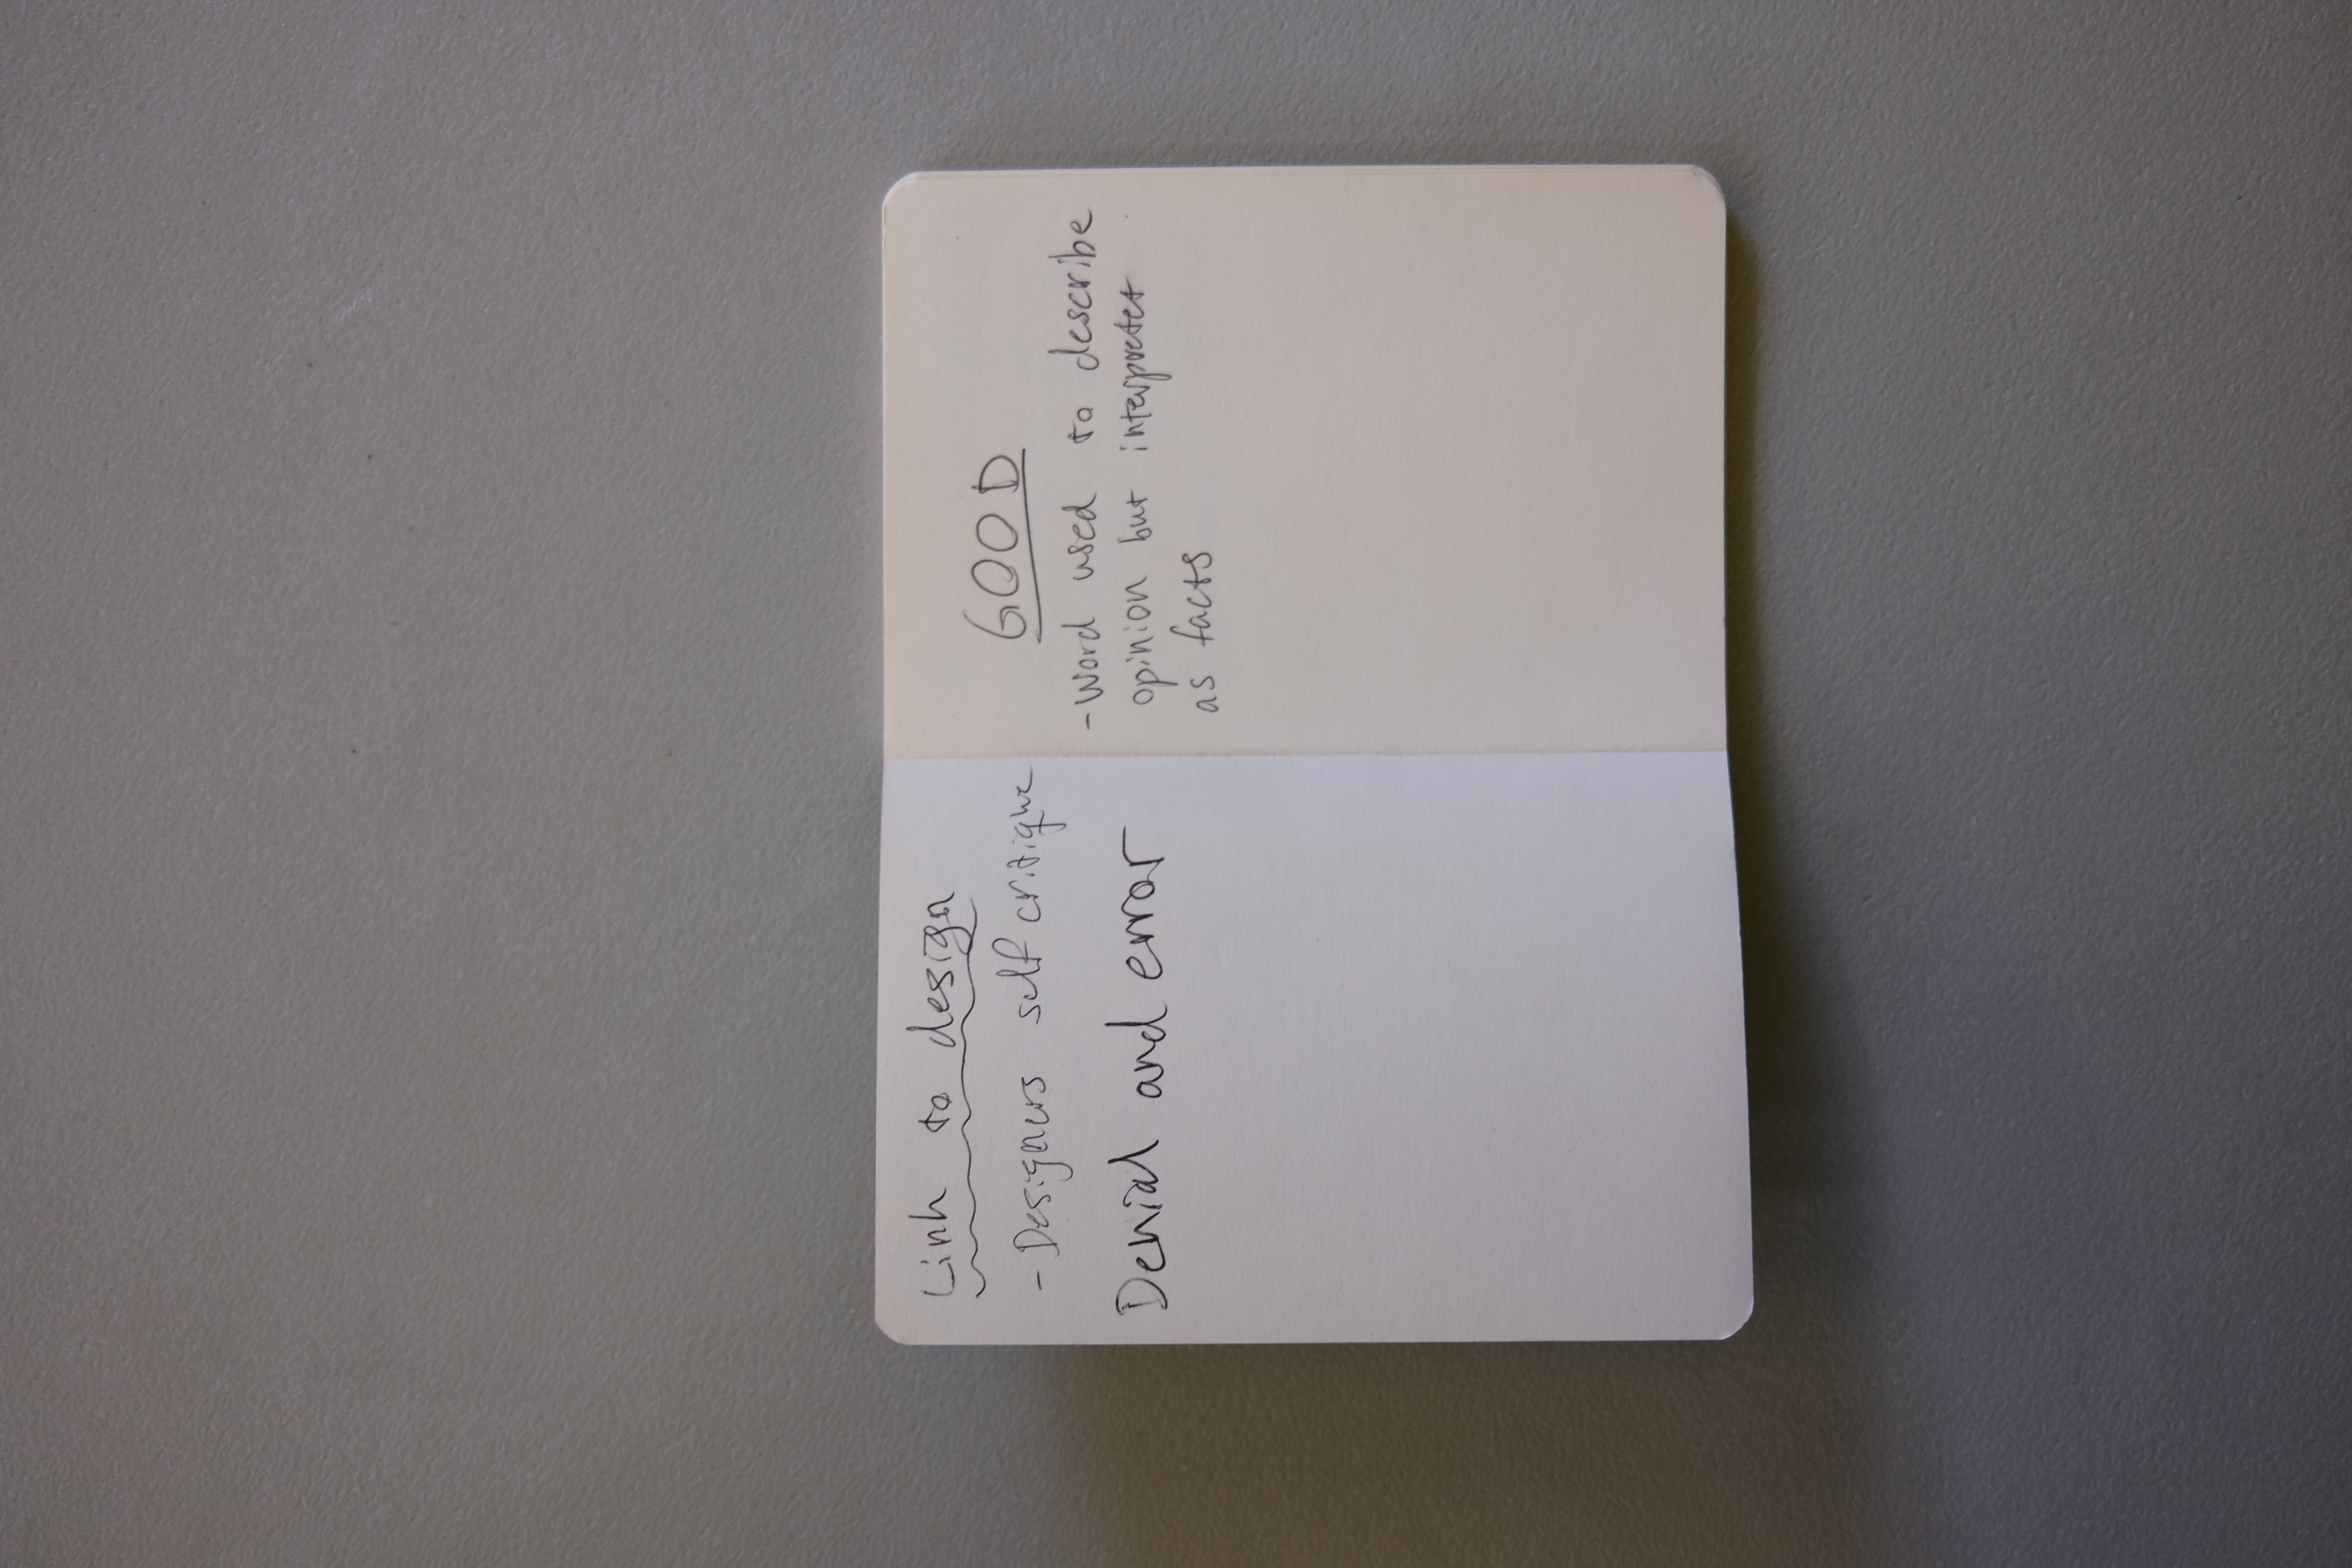 Link to design
- Designers self critique
Denial and error
GOOD
- Word used to describe
opinion but interpreter
as facts